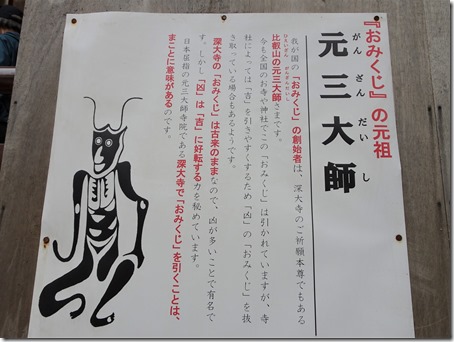 『おみくじ』の元祖
がんざんだいし
元三大師
我が国の「おみくじ」の創始者は、深大寺のご祈願本尊でもある
ひえいざん がんざんだいし
比叡山の元三大師さまです。
今も全国のお寺や神社でこの「おみくじ」は引かれていますが、寺
社によっては「吉」を引きやすくするため「凶」の「おみくじ」を抜
き取っている場合もあるようです。
深大寺の「おみくじ」は古来のままなので、凶が多いことで有名で
す。しかし「凶」は「吉」に好転する力を秘めています。
日本屈指の元三大師寺院である深大寺で「おみくじ」を引くことは、
まことに意味があるのです。